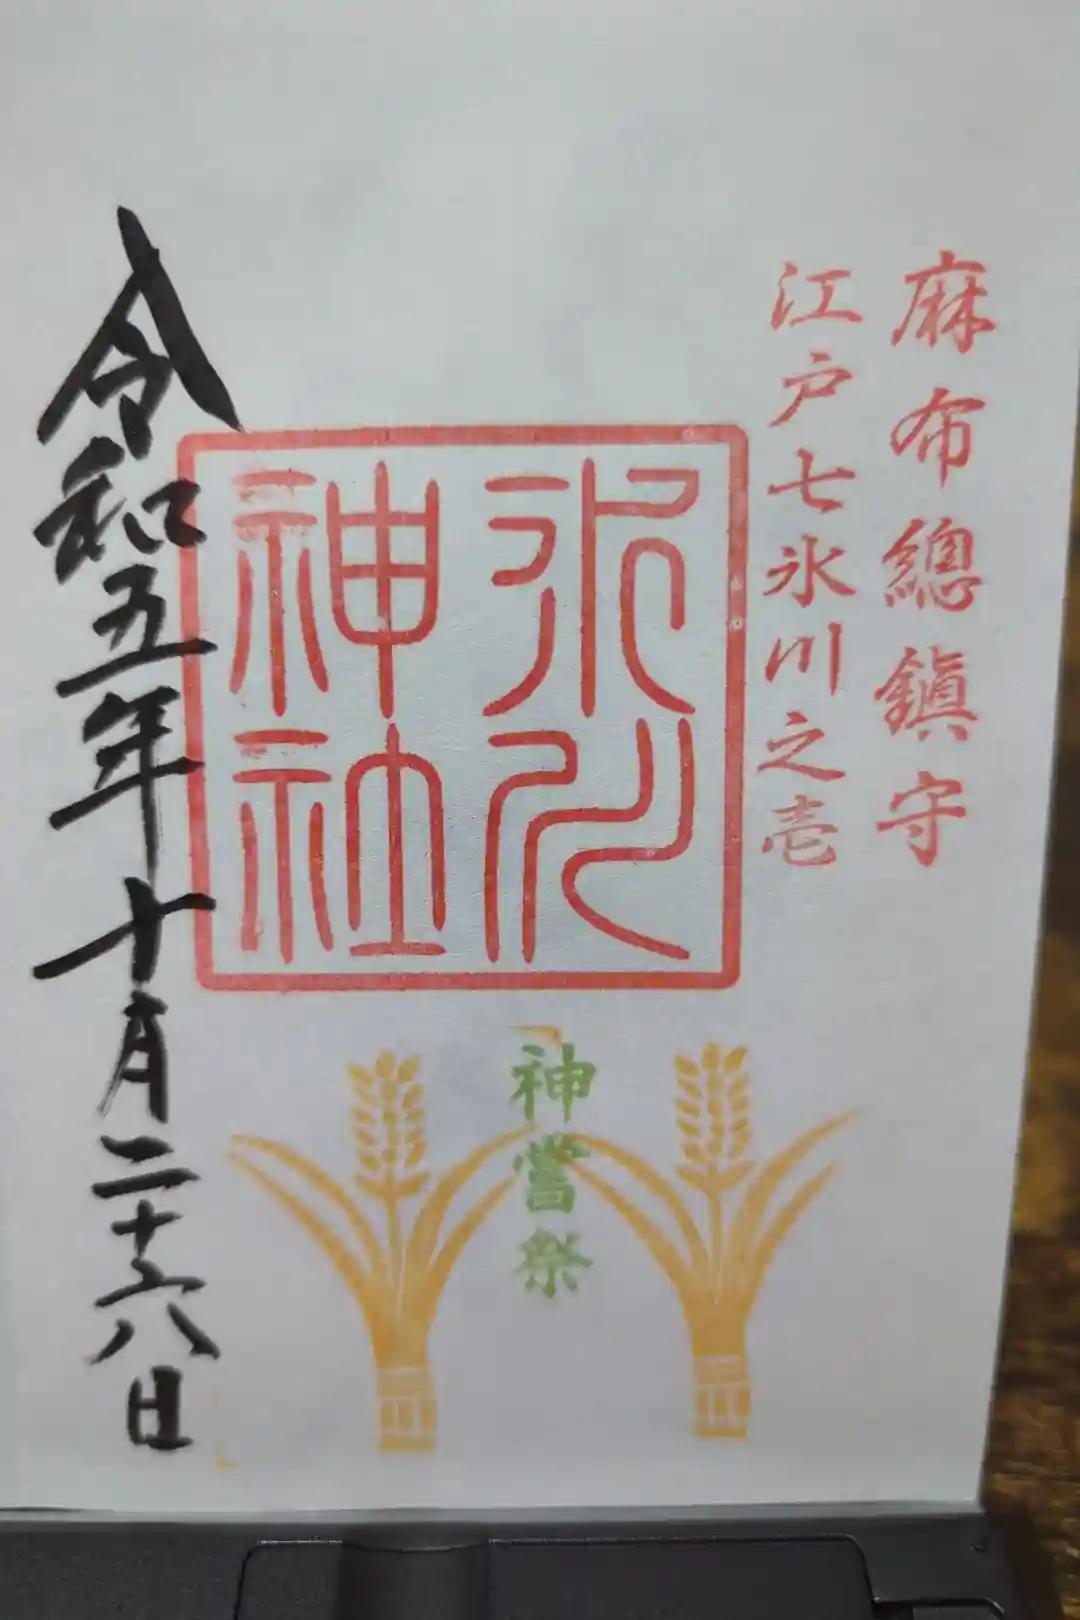 麻布總鎮守
江戸七氷川之壱
氷川
神社
神嘗祭
令和五年十月二十六日